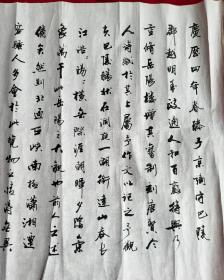 慶歷四年春滕子京謫守巴陵
郡越明年政通人和百廢待興乃
重修岳陽樓增其舊制刻唐賢今
人詩賦於其上屬予作文以記之予觀
夫巴陵勝狀在洞庭一湖銜遠山吞長
江浩々湯々橫無際涯朝暉夕陰氣
象萬千此岳陽樓之大觀也前人之述
備矣然則北通巫峽南極瀟湘遷
客騷人多會於此覽物之情得無異